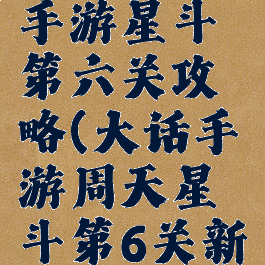 手游星斗
第六关攻
略(大话手
游周天星
斗第6关新